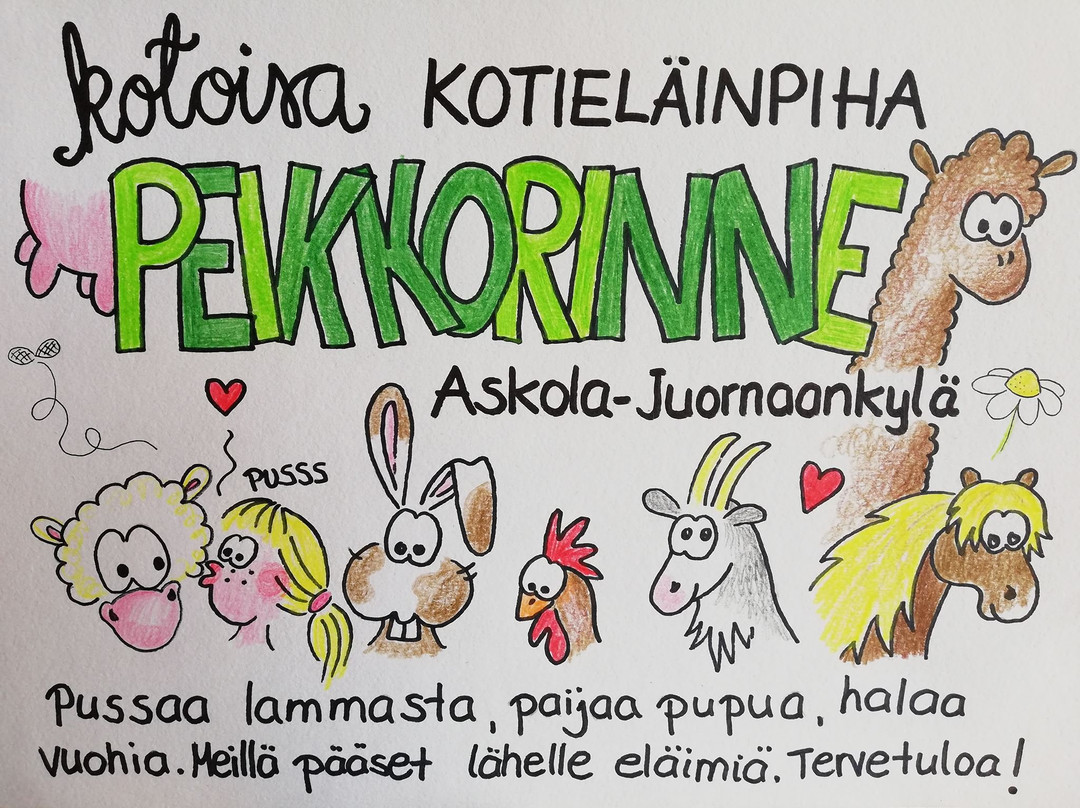 kotoisa KOTIELÄINPIHA
PEIKKORINNE
Askola-Juornaankylä
PUSSS
Pussaa lammasta, paijaa pupua, halaa
vuohia. Meillä pääset lähelle eläimiä. Tervetuloa!